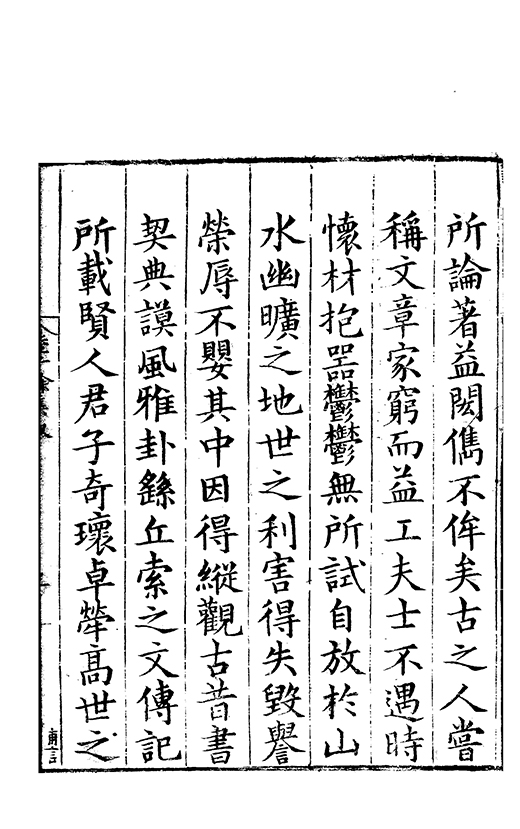 所論著益閎儁不侔矣古之人嘗
稱文章家窮而益工夫士不遇時
懷材抱器鬱鬱無所試自放於山
水幽曠之地世之利害得失毀譽
榮辱不嬰其中因得縱觀古昔書
契典謨風雅卦繇丘索之文傳記
所載賢人君子奇瓌卓犖高世之